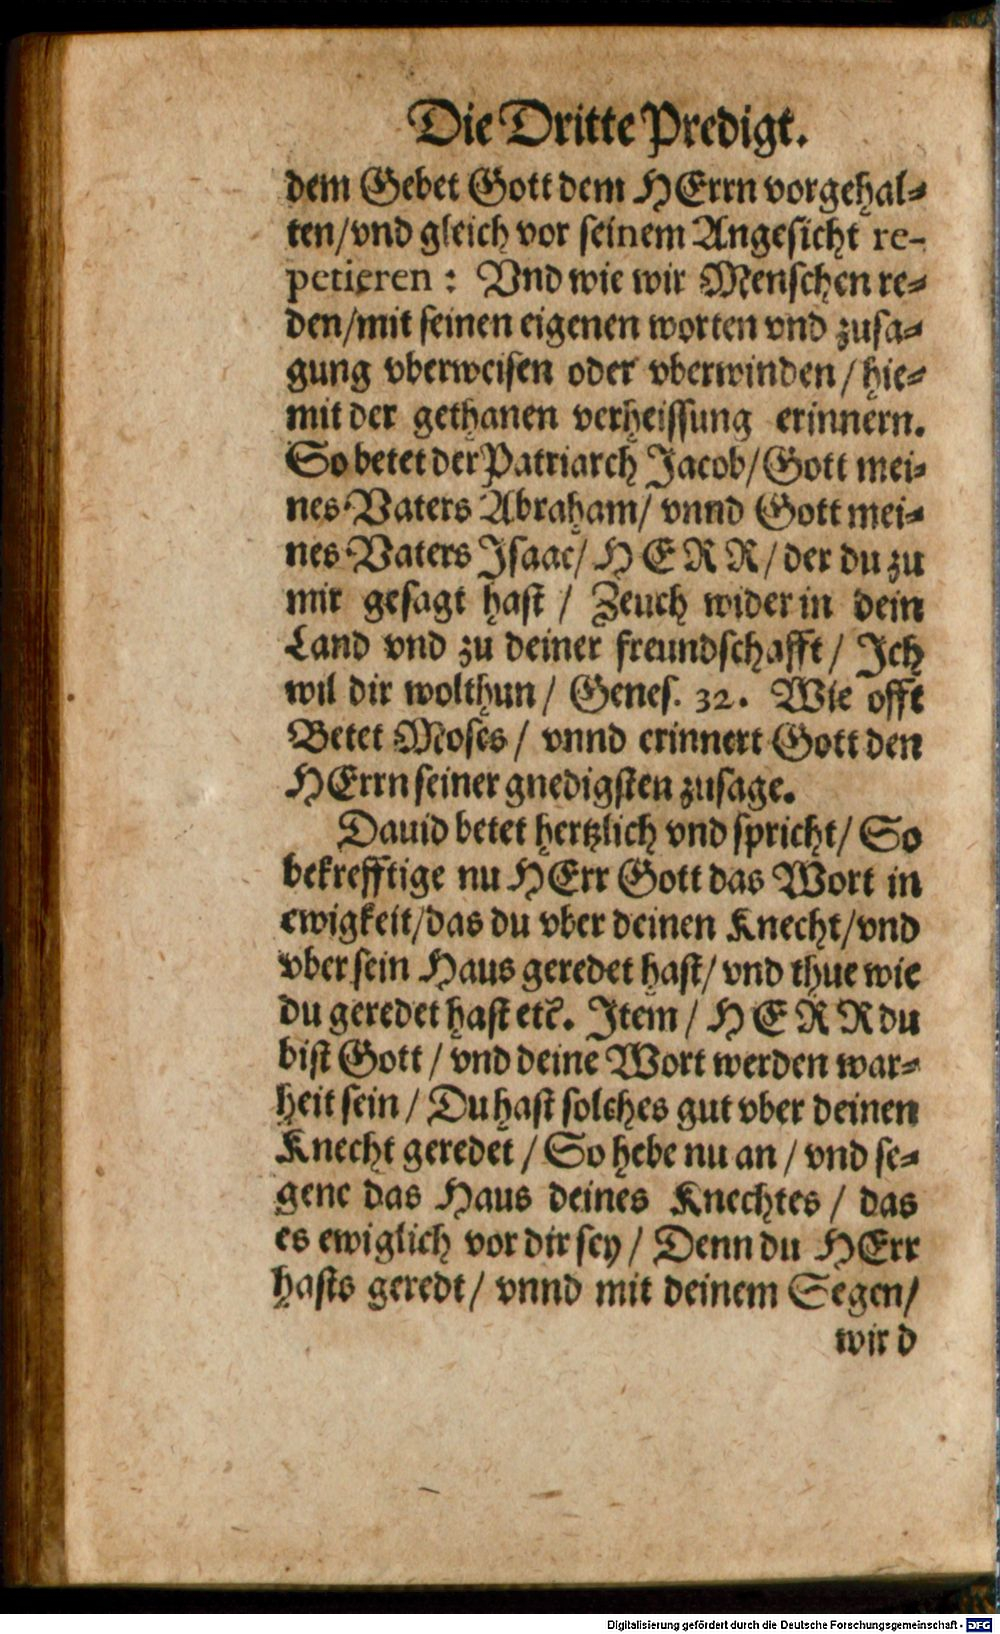 Die Dritte Predigt.
dem Gebet Gott dem HErrn vorgehal-
ten/vnd gleich vor seinem Angesicht re-
petieren: Vnd wie wir Menschen re-
den/mit seinen eigenen worten vnd zusa-
gung vberweisen oder vberwinden/hie-
mit der gethanen verheissung erinnern.
So betet der Patriarch Jacob/Gott mei-
nes Vaters Abraham/ vnnd Gott mei-
nes Vaters Isaac/ HERR/der du zu
mir gesagt hast / Zeuch wider in dein
Land vnd zu deiner freundschafft/ Ich
wil dir wolthun/ Genes. 32. Wie offt
Betet Moses/ vnnd erinnert Gott den
HErrn seiner gnedigsten zusage.
Dauid betet hertzlich vnd spricht/ So
bekrefftige nu HErr Gott das Wort in
ewigkeit/das du vber deinen Knecht/vnd
vber sein Haus geredet hast/ vnd thue wie
du geredet hast etc. Item/ HERR du
bist Gott/ vnd deine Wort werden war-
heit sein/ Du hast solches gut vber deinen
Knecht geredet/ So hebe nu an/ vnd se-
gene das Haus deines Knechtes/ das
es ewiglich vor dir sey/ Denn du HErr
hasts geredt/ vnnd mit deinem Segen/
wird
Digitalisierung gefördert durch die Deutsche Forschungsgemeinschaft - DFG